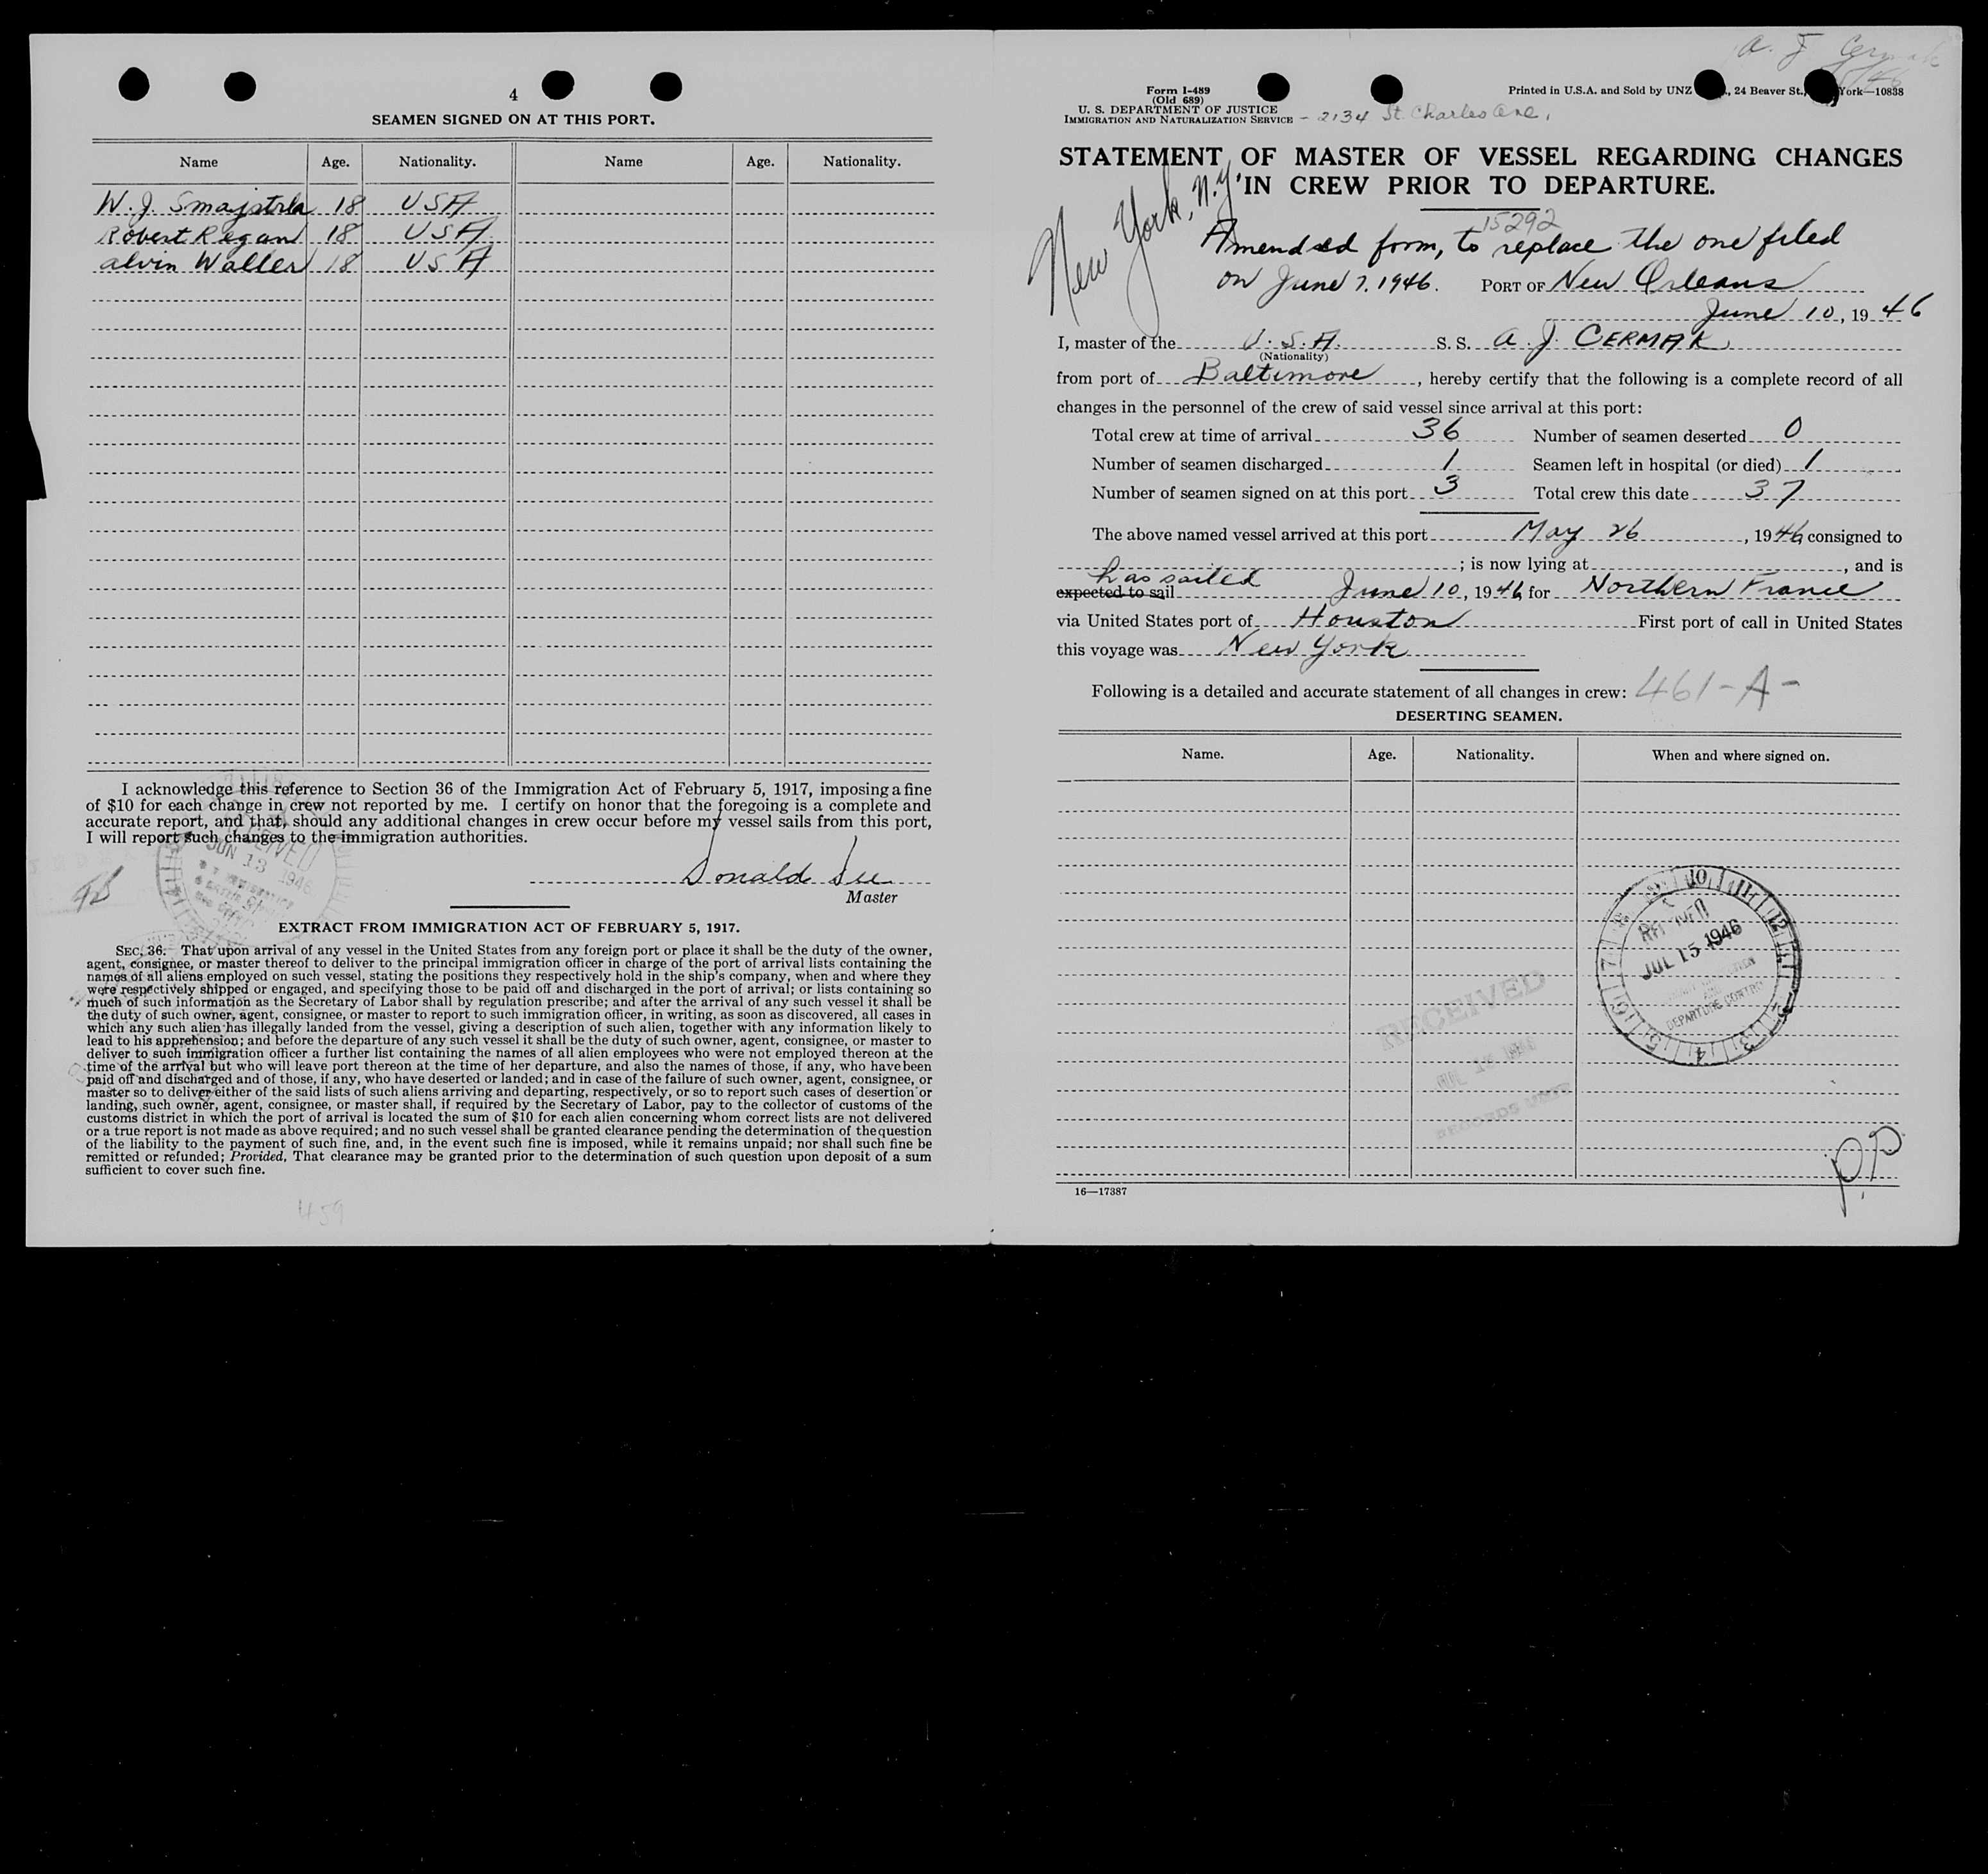 4
SEAMEN SIGNED ON AT THIS PORT.
Name Age. Nationality. Name Age. Nationality.
W. J. Smajstrla 18 USA
Robert Regan 18 USA
Alvin Waller 18 USA
I acknowledge this reference to Section 36 of the Immigration Act of February 5, 1917, imposing a fine
of $10 for each change in crew not reported by me. I certify on honor that the foregoing is a complete and
accurate report, and that, should any additional changes in crew occur before my vessel sails from this port,
I will report such changes to the immigration authorities.
RECEIVED
JUN 13 1946
Donald
Master
EXTRACT FROM IMMIGRATION ACT OF FEBRUARY 5, 1917.
SEC. 36. That upon arrival of any vessel in the United States from any foreign port or place it shall be the duty of the owner,
agent, consignee, or master thereof to deliver to the principal immigration officer in charge of the port of arrival lists containing the
names of all aliens employed on such vessel, stating the positions they respectively hold in the ship's company, when and where they
were respectively shipped or engaged, and specifying those to be paid off and discharged in the port of arrival; or lists containing so
much of such information as the Secretary of Labor shall by regulation prescribe; and after the arrival of any such vessel it shall be
the duty of such owner, agent, consignee, or master to report to such immigration officer, in writing, as soon as discovered, all cases in
which any such alien has illegally landed from the vessel, giving a description of such alien, together with any information likely to
lead to his apprehension; and before the departure of any such vessel it shall be the duty of such owner, agent, consignee, or master to
deliver to such immigration officer a further list containing the names of all alien employees who were not employed thereon at the
time of the arrival but who will leave port thereon at the time of her departure, and also the names of those, if any, who have been
paid off and discharged and of those, if any, who have deserted or landed; and in case of the failure of such owner, agent, consignee, or
master so to deliver either of the said lists of such aliens arriving and departing, respectively, or so to report such cases of desertion or
landing, such owner, agent, consignee, or master shall, if required by the Secretary of Labor, pay to the collector of customs of the
customs district in which the port of arrival is located the sum of $10 for each alien concerning whom correct lists are not delivered
or a true report is not made as above required; and no such vessel shall be granted clearance pending the determination of the question
of the liability to the payment of such fine, and, in the event such fine is imposed, while it remains unpaid; nor shall such fine be
remitted or refunded; Provided, That clearance may be granted prior to the determination of such question upon deposit of a sum
sufficient to cover such fine.
459
A. J. Cermak
Form I-489
(Old 689)
U. S. DEPARTMENT OF JUSTICE
IMMIGRATION AND NATURALIZATION SERVICE - 2134 St. Charles Ave.
Printed in U.S.A. and Sold by UNZ , 24 Beaver St., York—10838
STATEMENT OF MASTER OF VESSEL REGARDING CHANGES
IN CREW PRIOR TO DEPARTURE.
New York, N.Y.
15292
Amended form, to replace the one filed
on June 7, 1946. PORT OF New Orleans
June 10, 1946
I, master of the U.S.A. S. S. A. J. CERMAK
(Nationality)
from port of Baltimore, hereby certify that the following is a complete record of all
changes in the personnel of the crew of said vessel since arrival at this port:
Total crew at time of arrival 36 Number of seamen deserted 0
Number of seamen discharged 1 Seamen left in hospital (or died) 1
Number of seamen signed on at this port 3 Total crew this date 37
The above named vessel arrived at this port May 26, 1946 consigned to
; is now lying at , and is
has sailed
expected to sail June 10, 1946 for Northern France
via United States port of Houston First port of call in United States
this voyage was New York
Following is a detailed and accurate statement of all changes in crew: 461-A-
DESERTING SEAMEN.
Name. Age. Nationality. When and where signed on.
RECEIVED
JUL 15 1946
DEPARTURE CONTROL
RECEIVED
RECORDS UNIT
P.P.
16—17387